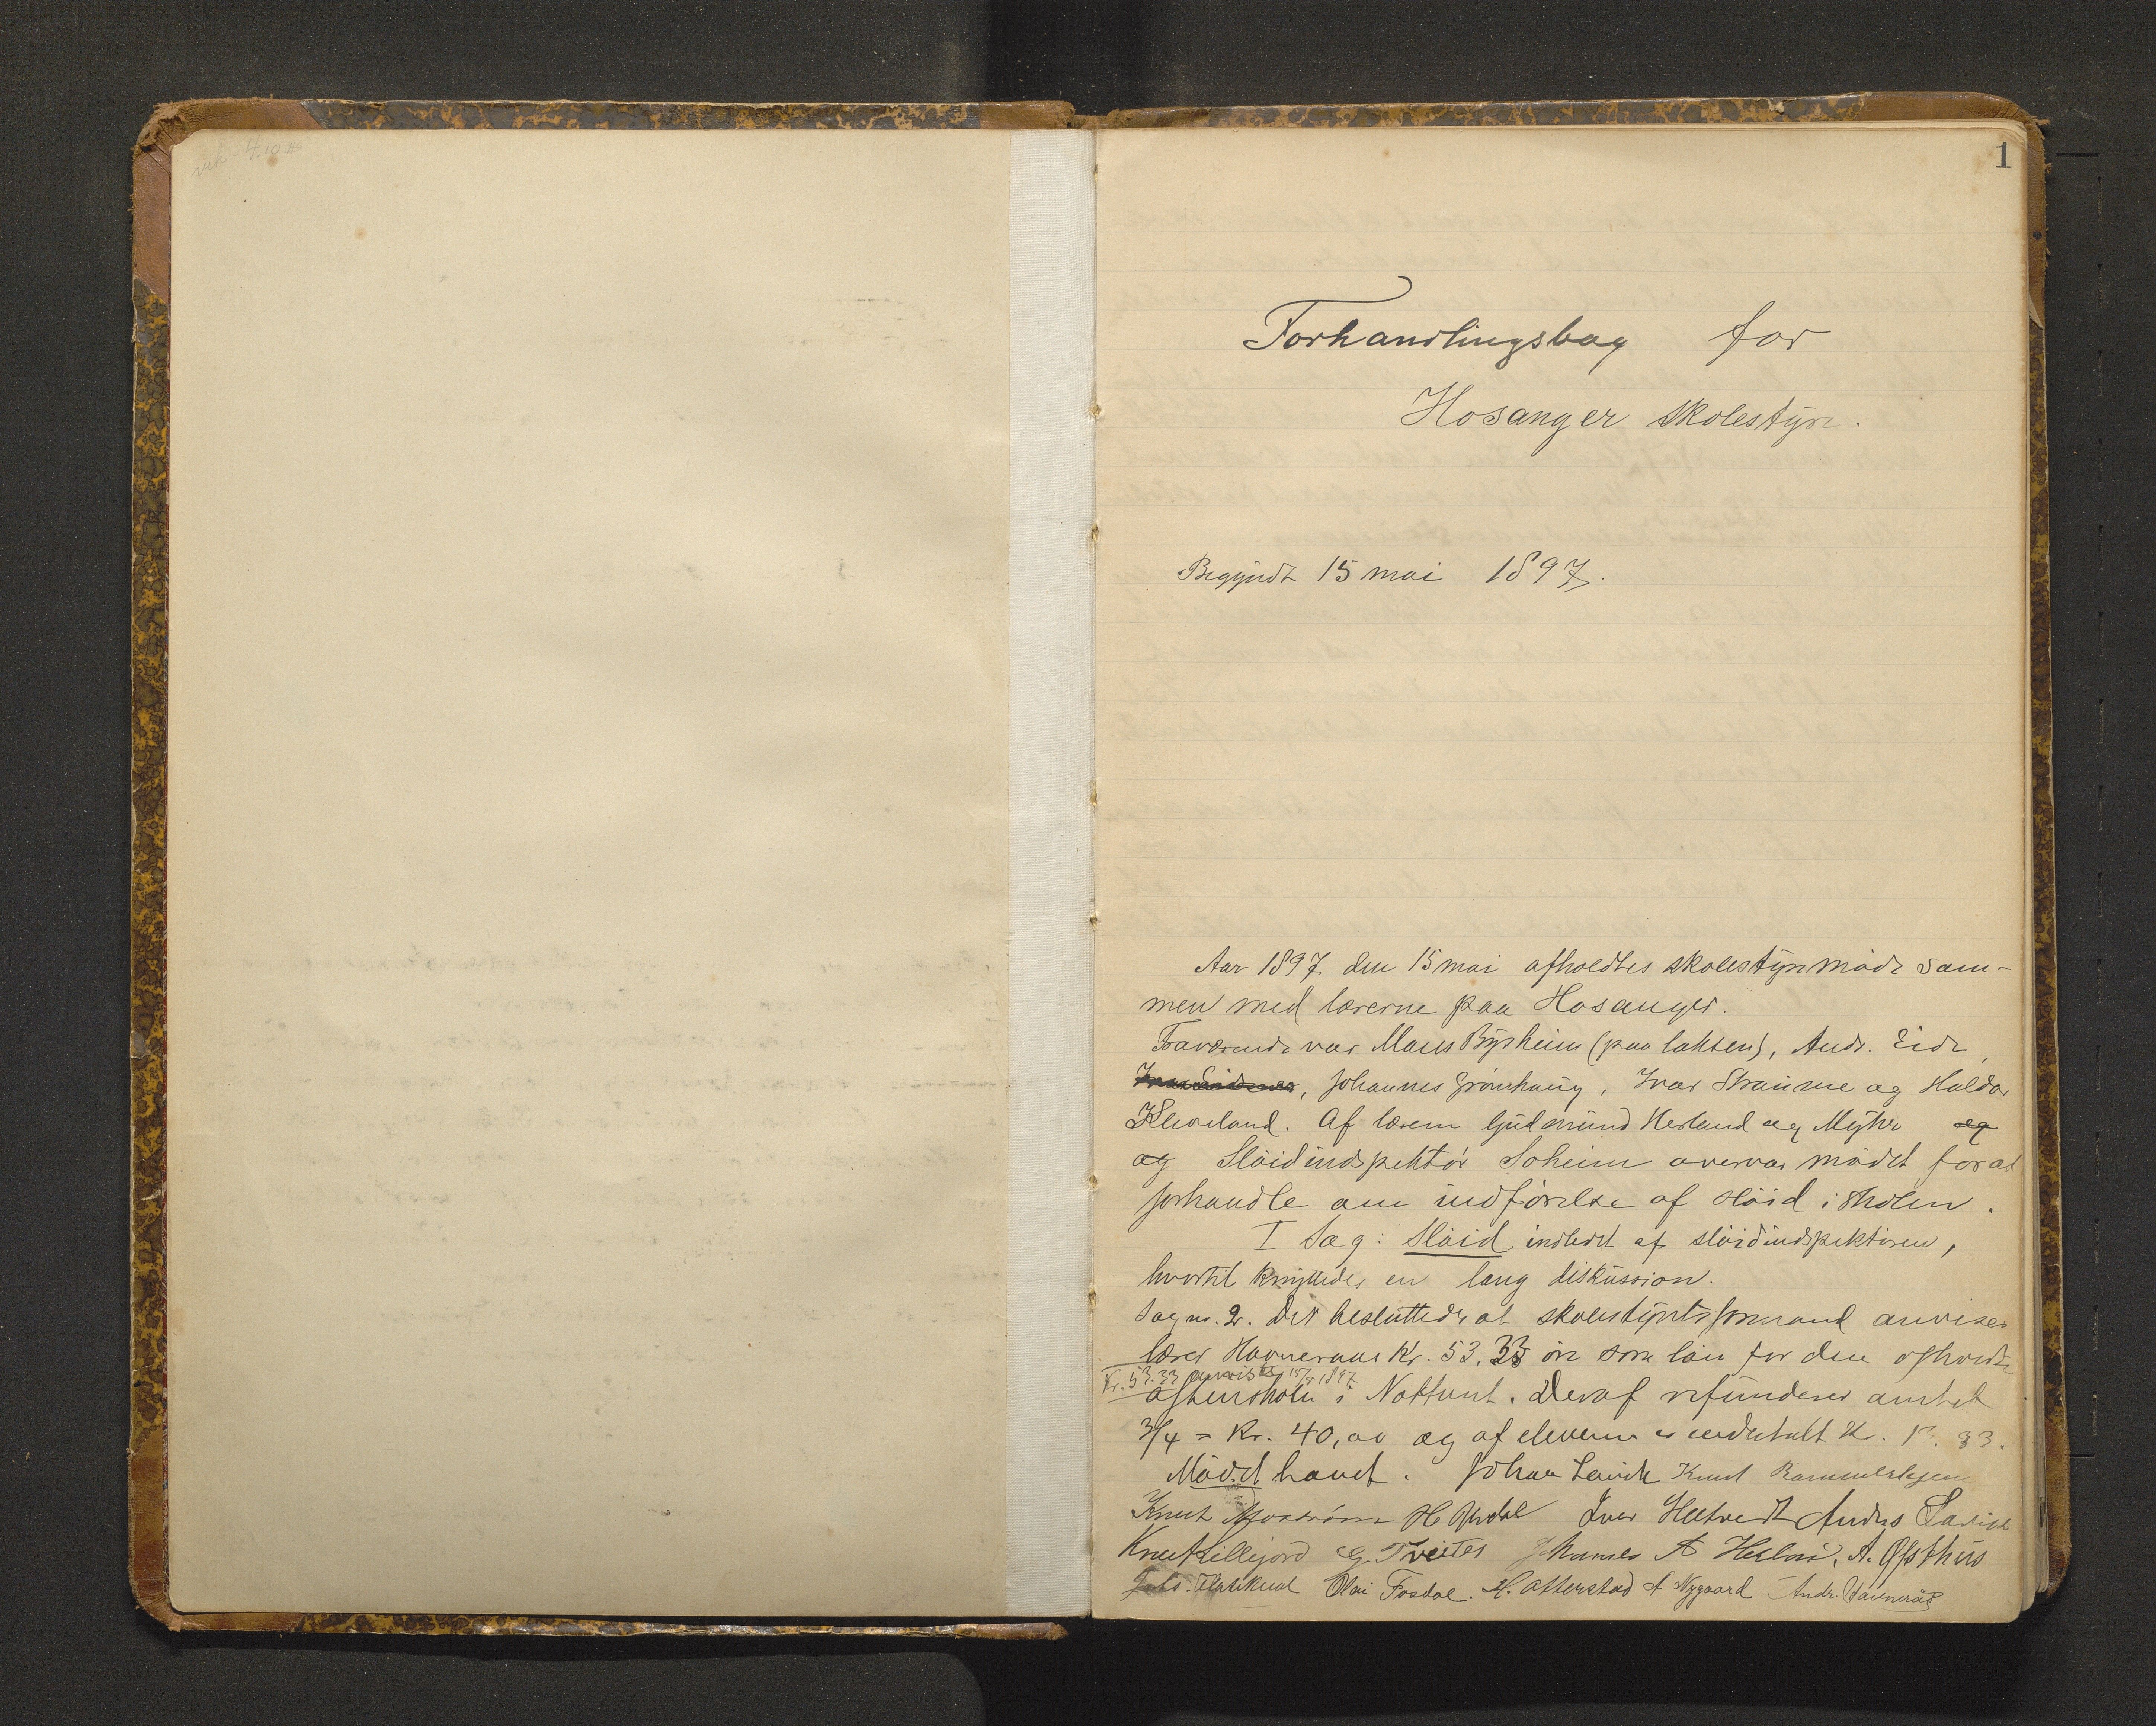 1
Forhandlingsbog for
Hosanger skolestyre.
Begyndt 15 mai 1897.
Aar 1897 den 15 mai afholdtes skolestyremöde sam-
men med lærerne paa Hosanger.
Fraværende var Mons Byrheim (paa laksen), Andr. Eide,
, Johannes Grönhaug, Ivar Straume og Haldor
Kleiveland. Af lærerne Gudmund Herland og Myhre og
og Slöidindspektör Soheim overvar mödet for at
forhandle om indförelse af slöid i skolen.
I Sag: Slöid indledet af slöidindspektören,
hvortil knyttedes en lang diskussion.
Sag no. 2. Det besluttedes at skolestyrets formand anviser
lærer Havneraas Kr. 53.33 öre som lön for den afholdte
Kr. 53.33 anvist 15/5 1897
aftenskole i Nottveit. Deraf refunderer amtet
3/4 = Kr. 40,00 og af eleverne er indbetalt Kr. 13.33.
Mödet hævet. Johan Lavik Knut
Knut H Urdal Iver Hæltvedt Anders Lavik
Knut Lillejord G. Tveiten Johannes A A. Ofsthus
Olai Fosdal. H. Otterstad A Nygaard Andr. Havneräs